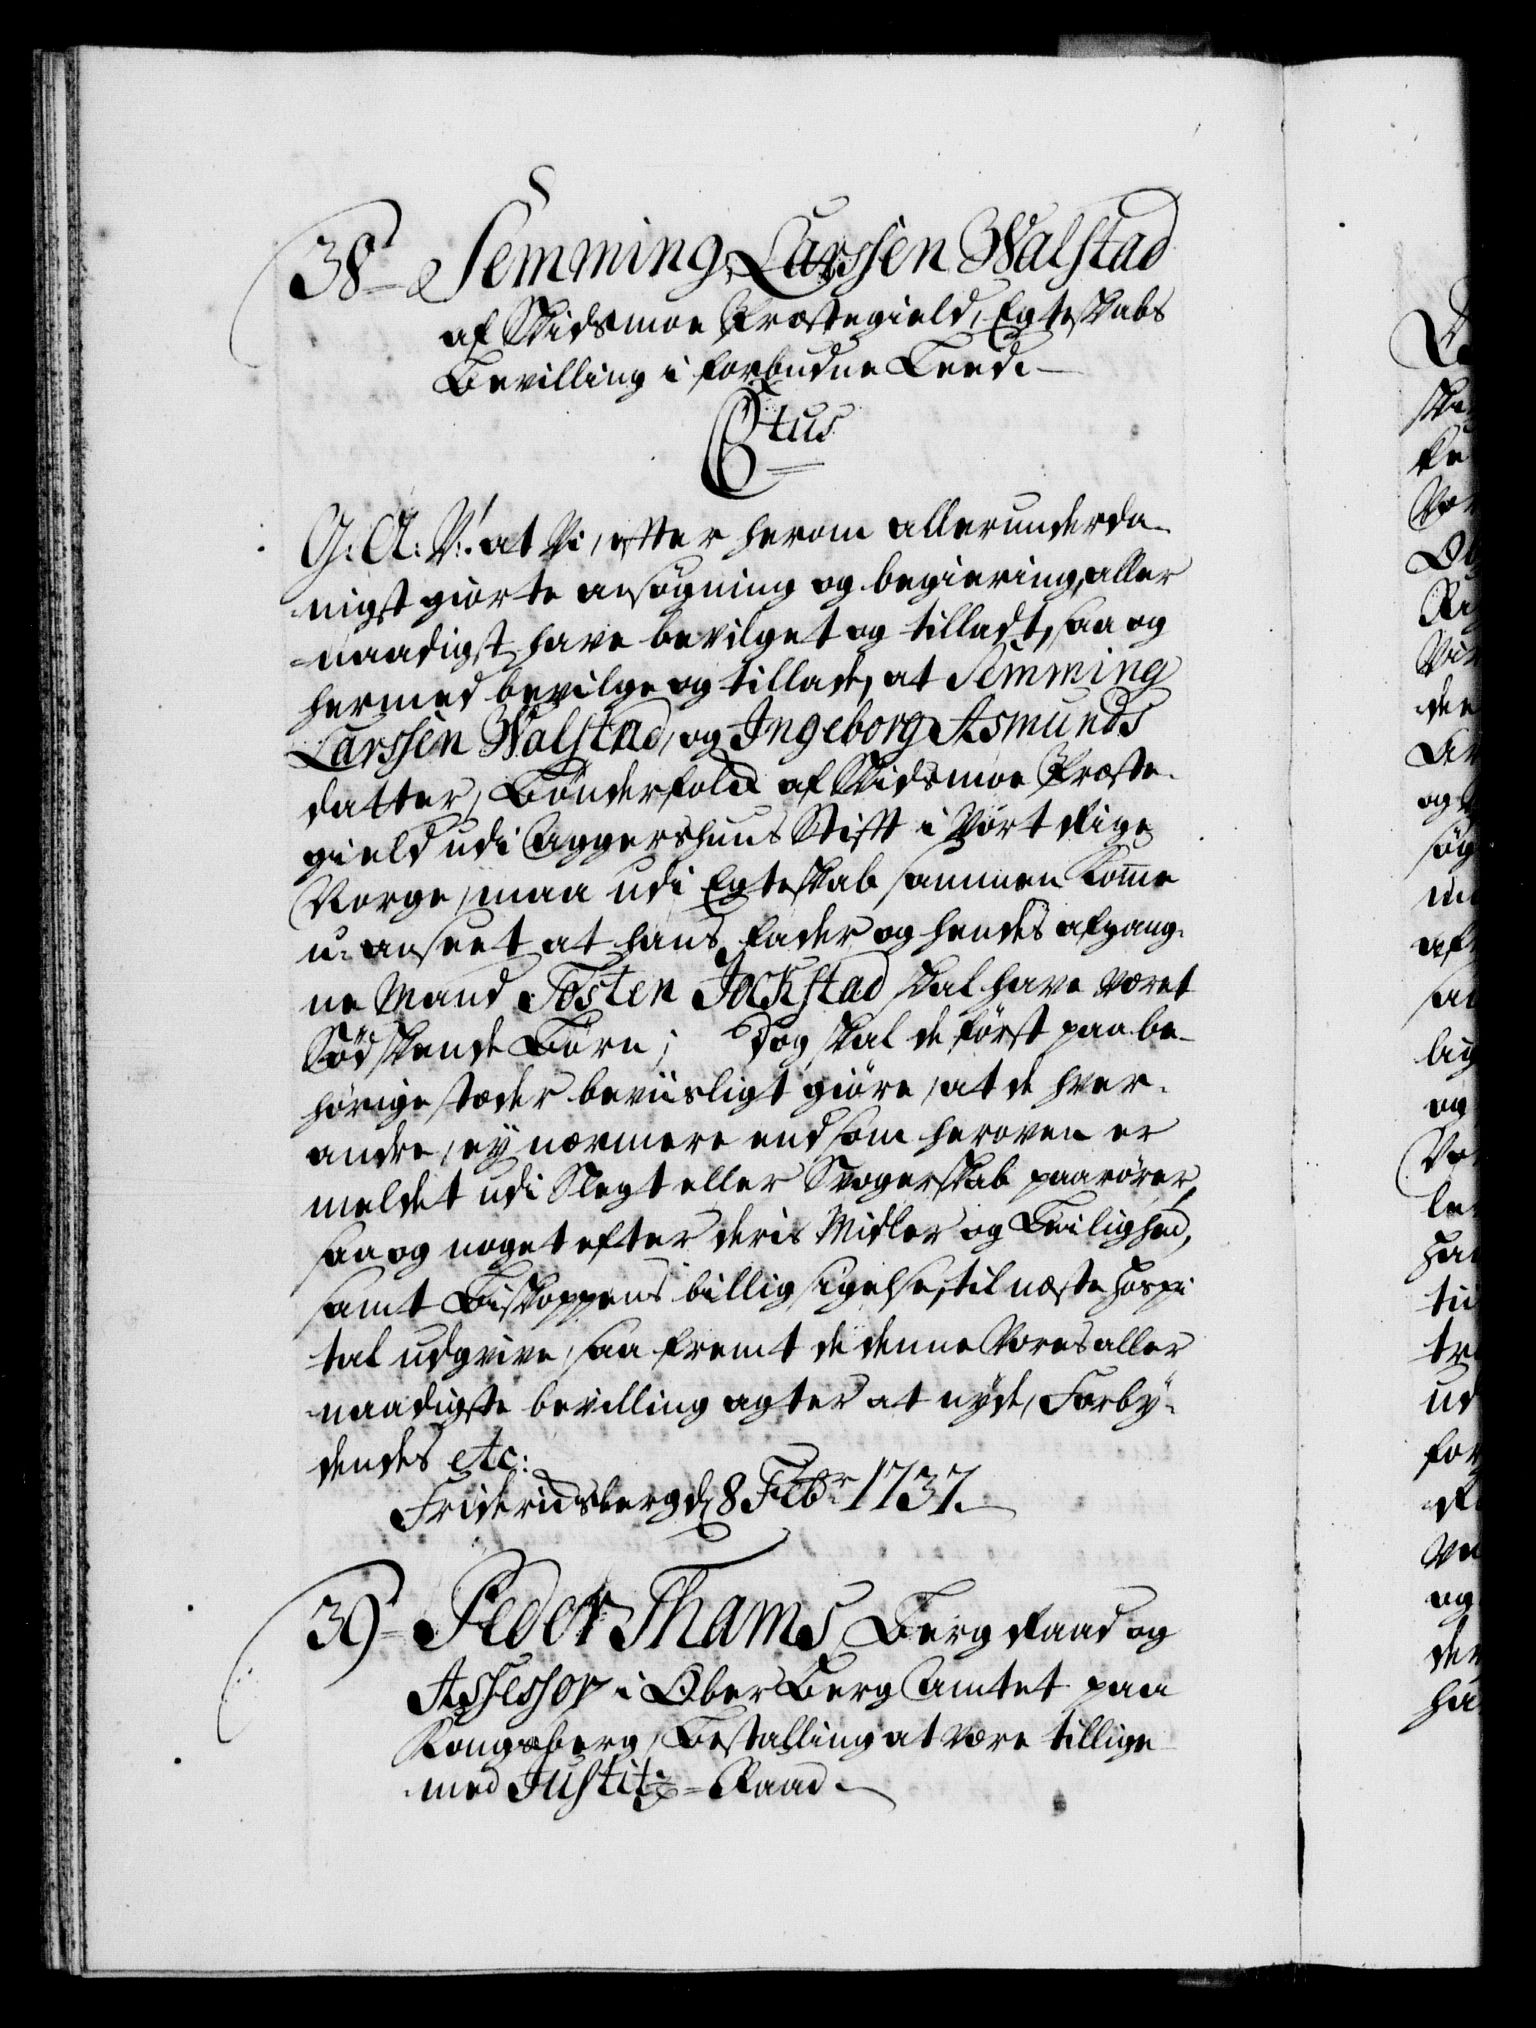 38 Semming Larssen Walstad
af Skidsmoe Præstegield, Egteskabs
Bevilling i forbudne Leed.
C6tus
G: A: V: at Vi, efter herom allerunderda-
nigst giorte ansøgning og begiering, aller
naadigst have bevilget og tilladt, saa og
hermed bevilge og tillade, at Semming
Larssen Walstad, og Ingeborg Asmunds
datter, Bønderfolck af Skidsmoe Præste-
gield udi Aggershuus Stift i Vort Rige
Norge, maa udi Egteskab sammen komme
u-anseet at hans Fader og hendes afgang-
ne Mand Tosten Jockstad skal have været
Sødskende Børn; Dog skal de først paa be-
hørige stæder beviisligt giøre, at de hver-
andre, ey nærmere end som heroven er
meldet udi Slegt eller Svogerskab paarører,
saa og noget efter deris Midler og Leilighed,
samt Biskoppens billig sigelse, til næste Hospi
tal udgive, saa fremt de denne Vores aller
naadigste bevilling agter at nyde, Forby-
dendes etc:
Fridericsberg d. 8 Febr 1737.
39 Peder Thams Berg Raad og
Assessor i Ober Berg Amtet paa
Kongsberg, Bestalling at være tillige
med Justitz-Raad